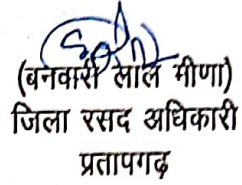 (बनवारी लाल मीणा)
जिला रसद अधिकारी
प्रतापगढ़